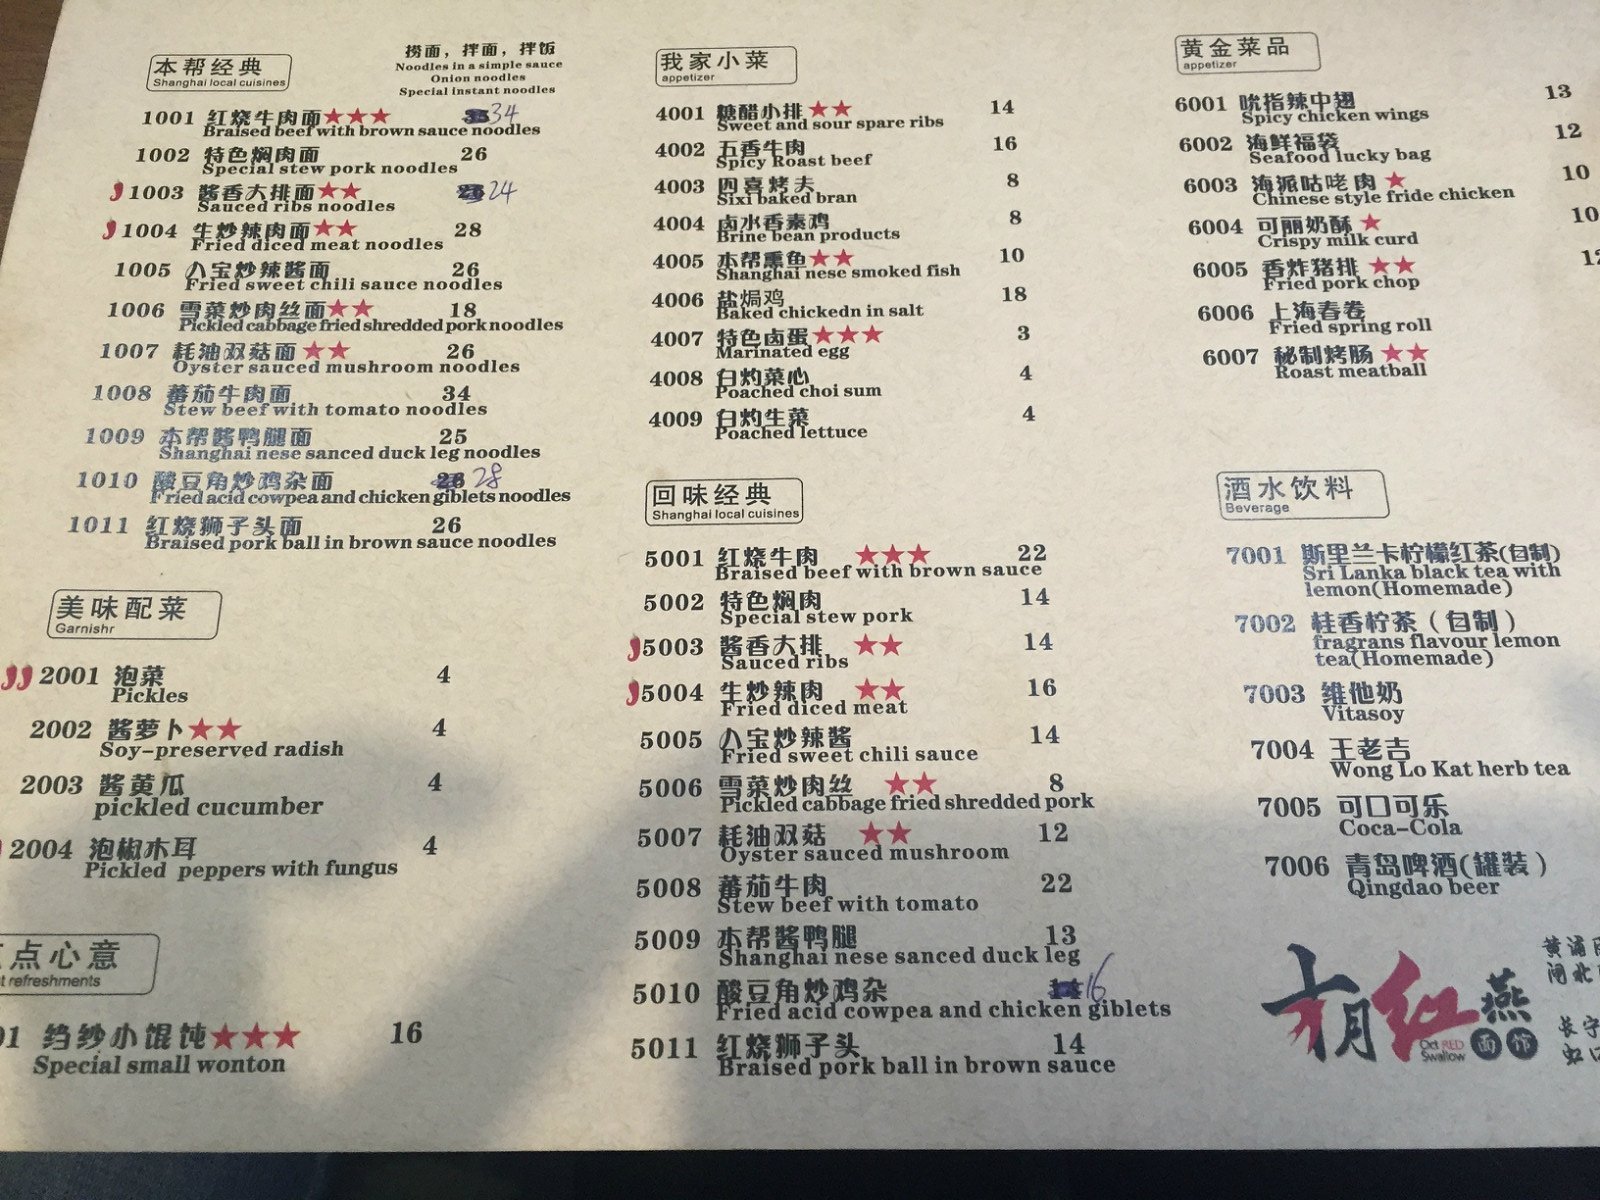 本帮经典
Shanghai local cuisines
捞面，拌面，拌饭
Noodles in a simple sauce
Onion noodles
Special instant noodles
1001 红烧牛肉面★★★ 34
Braised beef with brown sauce noodles
1002 特色焖肉面 26
Special stew pork noodles
1003 酱香大排面★★ 24
Sauced ribs noodles
1004 生炒辣肉面★★ 28
Fried diced meat noodles
1005 八宝炒辣酱面 26
Fried sweet chili sauce noodles
1006 雪菜炒肉丝面★★ 18
Pickled cabbage fried shredded pork noodles
1007 耗油双菇面★★ 26
Oyster sauced mushroom noodles
1008 蕃茄牛肉面 34
Stew beef with tomato noodles
1009 本帮酱鸭腿面 25
Shanghai nese sanced duck leg noodles
1010 酸豆角炒鸡杂面 28
Fried acid cowpea and chicken giblets noodles
1011 红烧狮子头面 26
Braised pork ball in brown sauce noodles
美味配菜
Garnishr
2001 泡菜 4
Pickles
2002 酱萝卜★★ 4
Soy-preserved radish
2003 酱黄瓜 4
pickled cucumber
2004 泡椒木耳 4
Pickled peppers with fungus
点心意
refreshments
01 绉纱小馄饨★★★ 16
Special small wonton
我家小菜
appetizer
4001 糖醋小排★★ 14
Sweet and sour spare ribs
4002 五香牛肉 16
Spicy Roast beef
4003 四喜烤夫 8
Sixi baked bran
4004 卤水香素鸡 8
Brine bean products
4005 本帮熏鱼★★ 10
Shanghai nese smoked fish
4006 盐焗鸡 18
Baked chickedn in salt
4007 特色卤蛋★★★ 3
Marinated egg
4008 白灼菜心 4
Poached choi sum
4009 白灼生菜 4
Poached lettuce
回味经典
Shanghai local cuisines
5001 红烧牛肉 ★★★ 22
Braised beef with brown sauce
5002 特色焖肉 14
Special stew pork
5003 酱香大排 ★★ 14
Sauced ribs
5004 生炒辣肉 ★★ 16
Fried diced meat
5005 八宝炒辣酱 14
Fried sweet chili sauce
5006 雪菜炒肉丝 ★★ 8
Pickled cabbage fried shredded pork
5007 耗油双菇 ★★ 12
Oyster sauced mushroom
5008 蕃茄牛肉 22
Stew beef with tomato
5009 本帮酱鸭腿 13
Shanghai nese sanced duck leg
5010 酸豆角炒鸡杂 16
Fried acid cowpea and chicken giblets
5011 红烧狮子头 14
Braised pork ball in brown sauce
黄金菜品
appetizer
6001 吮指辣中翅 13
Spicy chicken wings
6002 海鲜福袋 12
Seafood lucky bag
6003 海派咕咾肉 ★ 10
Chinese style fride chicken
6004 可丽奶酥 ★ 10
Crispy milk curd
6005 香炸猪排 ★★ 12
Fried pork chop
6006 上海春卷
Fried spring roll
6007 秘制烤肠 ★★
Roast meatball
酒水饮料
Beverage
7001 斯里兰卡柠檬红茶(自制)
Sri Lanka black tea with
lemon(Homemade)
7002 桂香柠茶（自制）
fragrans flavour lemon
tea(Homemade)
7003 维他奶
Vitasoy
7004 王老吉
Wong Lo Kat herb tea
7005 可口可乐
Coca-Cola
7006 青岛啤酒(罐装）
Qingdao beer
十月红燕
Oct RED
Swallow
面馆
黄浦
河北
长宁
虹口